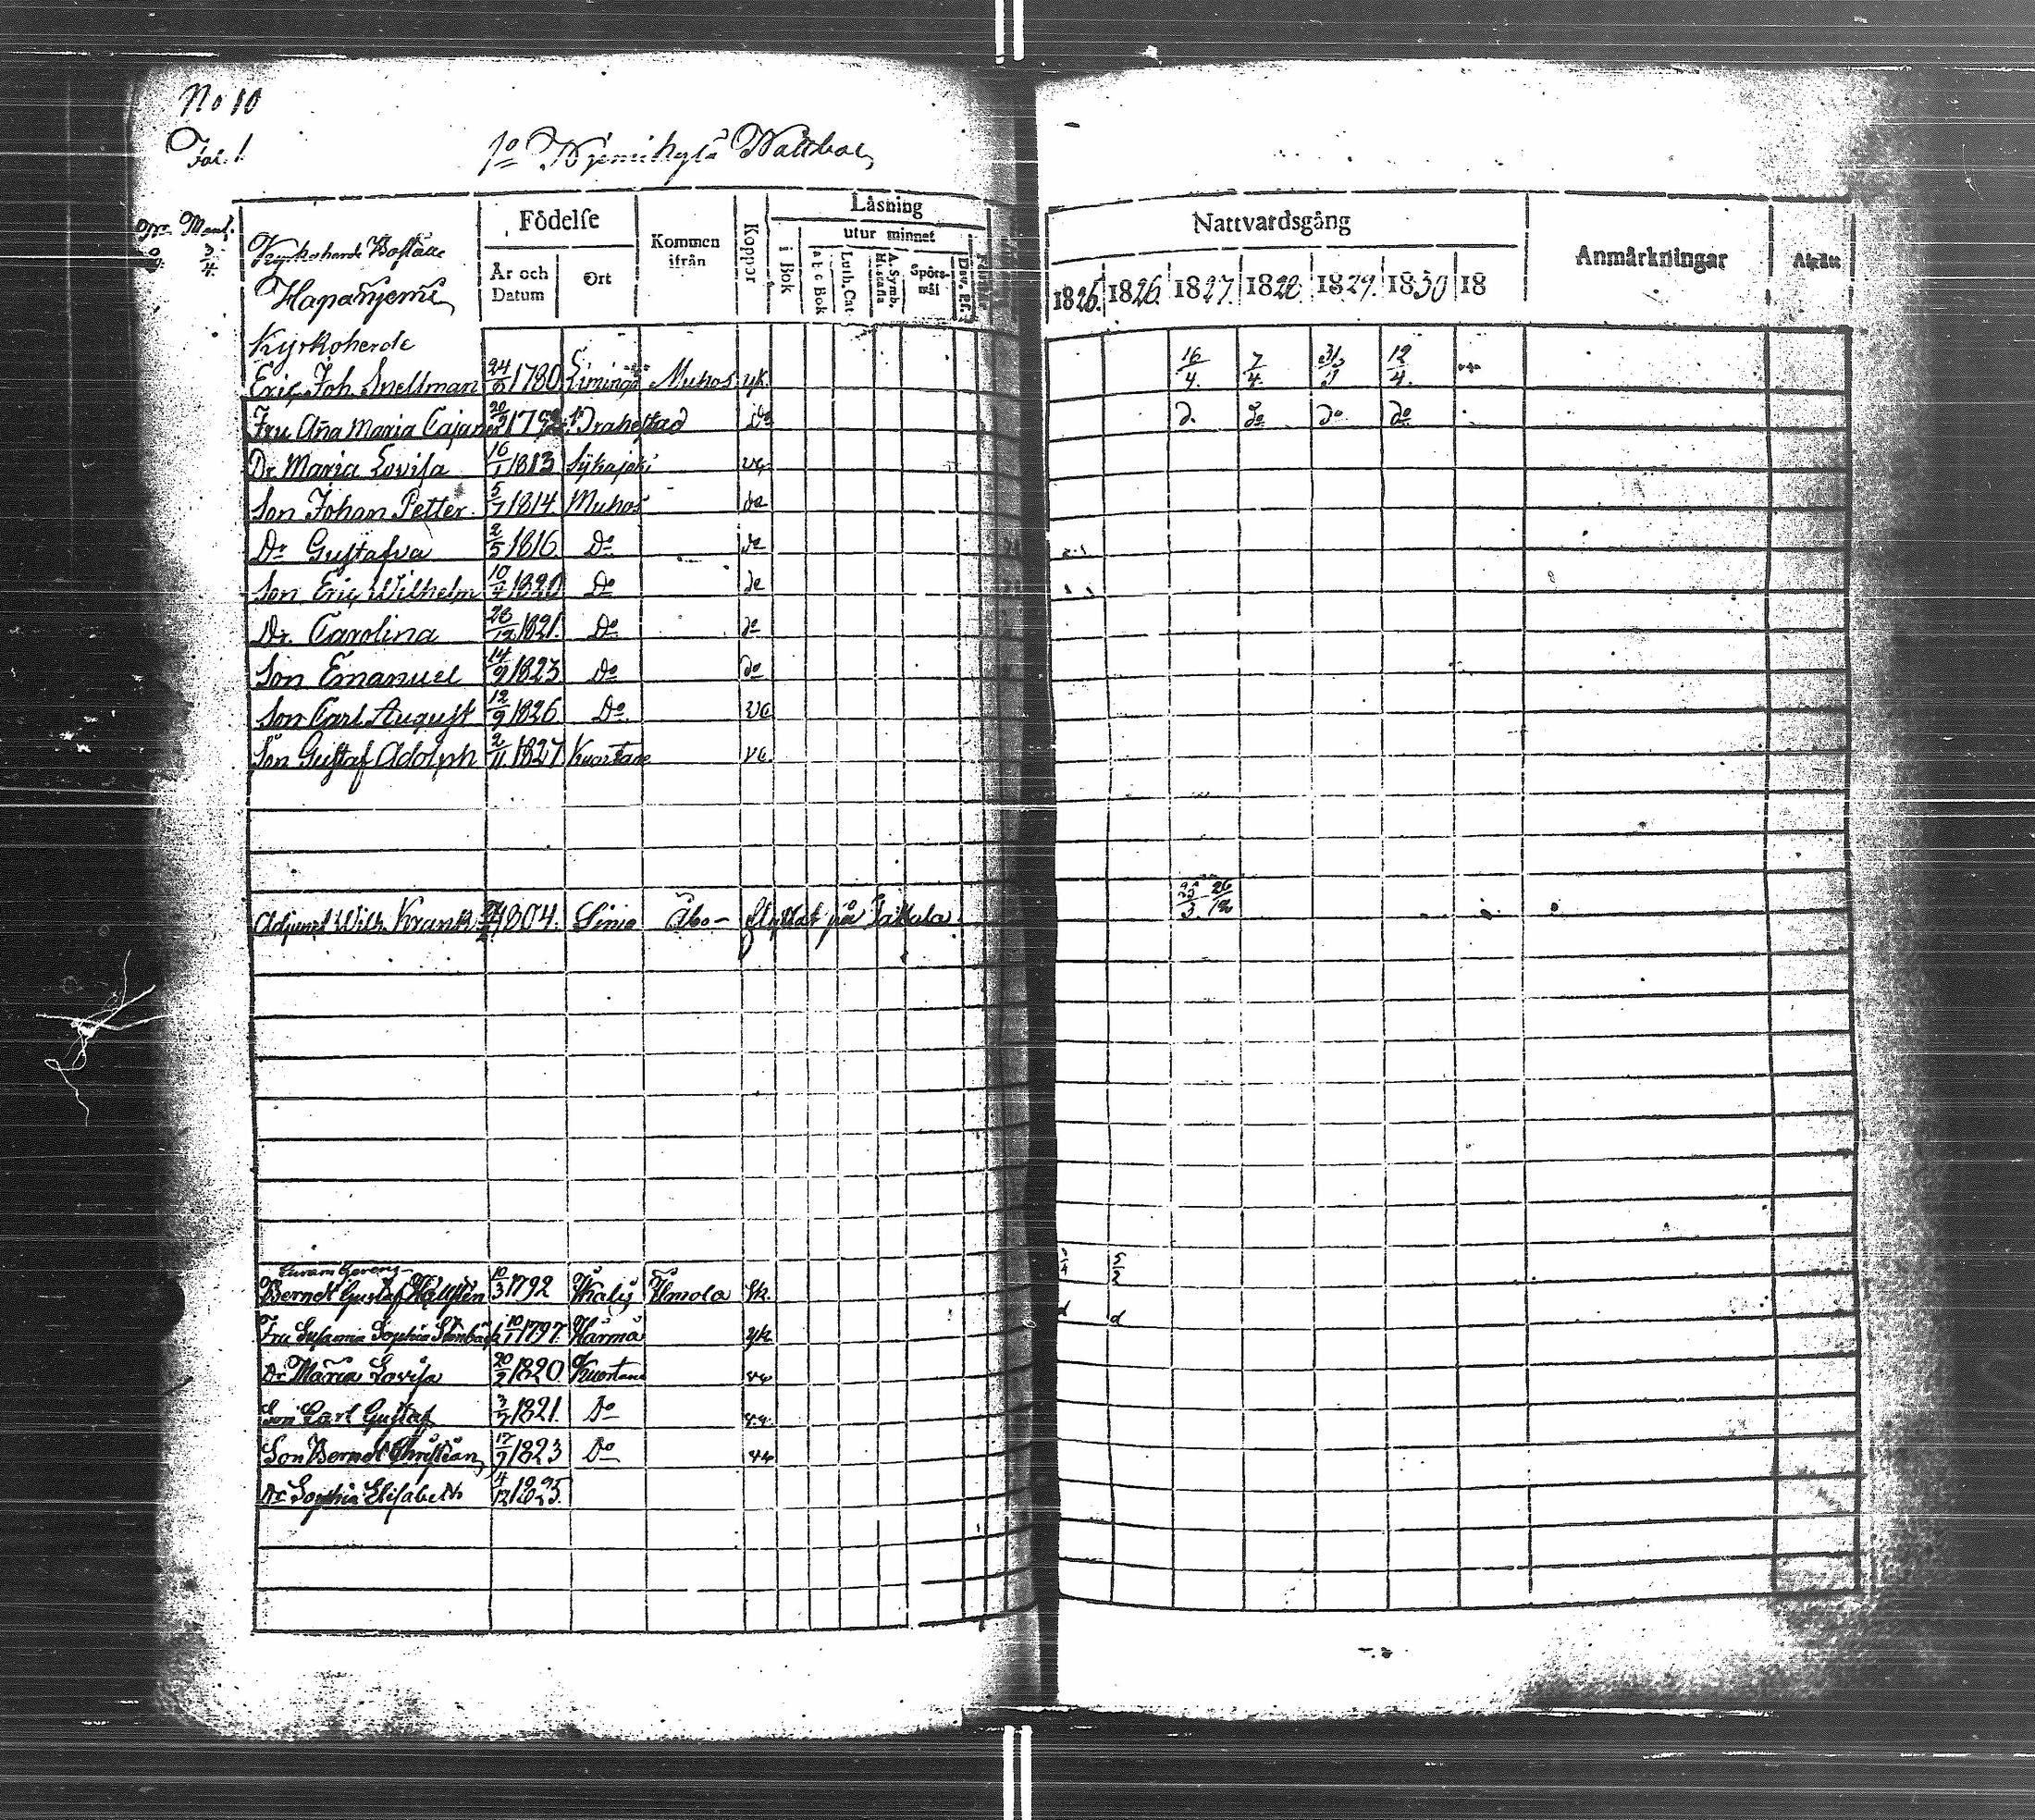 No 10
Fol. 1.
1o Niemikylä Wattbol
No Mantl. 3/4
Kyrkoherde Boställe
Hapaniemi
Födelse
År och Datum
Ort
Kommen ifrån
Koppor
Läsning
utur minnet
i Bok
a b c Bok
Luth. Cat.
A. Symb.
H. tafla
Spörsmål
Dav. Ps.
Nattvardsgång
1825. 1826. 1827. 1828 1829. 1830 18
Anmärkningar
Kyrkoherde
Eric Joh. Snellman 24/5 1780 Limingo Muhos yk. 16/4. 7/4. 12/4.
Fru Aña Maria Cajan Brahestad Do d. do do do
Dr. Maria Lovisa 16/1 1813 Sijkajoki vc.
Son Johan Petter 5/7 1814. Muhos do
Dr Gustafva 2/5 1816 Do do
Son Eric Wilhelm 10/4 1820 Do do
Dr. Carolina 28/12 1821. Do do
Son Emanuel 14/9 1823 Do do
Son Carl August 12/9 1826 Do vc
Son Gustaf Adolph 2/11 1827 Kuortane vc.
Adjunct Wilh. Krank 1804. Simo Åbo flyttat på Taittala
Bernd Gustaf Hällstén 10/3 1792 Ilmola yk. 5/2
Fru Susanna Sophia Stenbäck 10/1 1797. Härmä yk d d
Dr Maria Lovisa 20/2 1820 Kuortane vc
Son Carl Gustaf 3/7 1821. Do v.c.
Son Bernd Christian 17/7 1823 Do vc
Dr Sophia Elisabeth 4/12 1825.